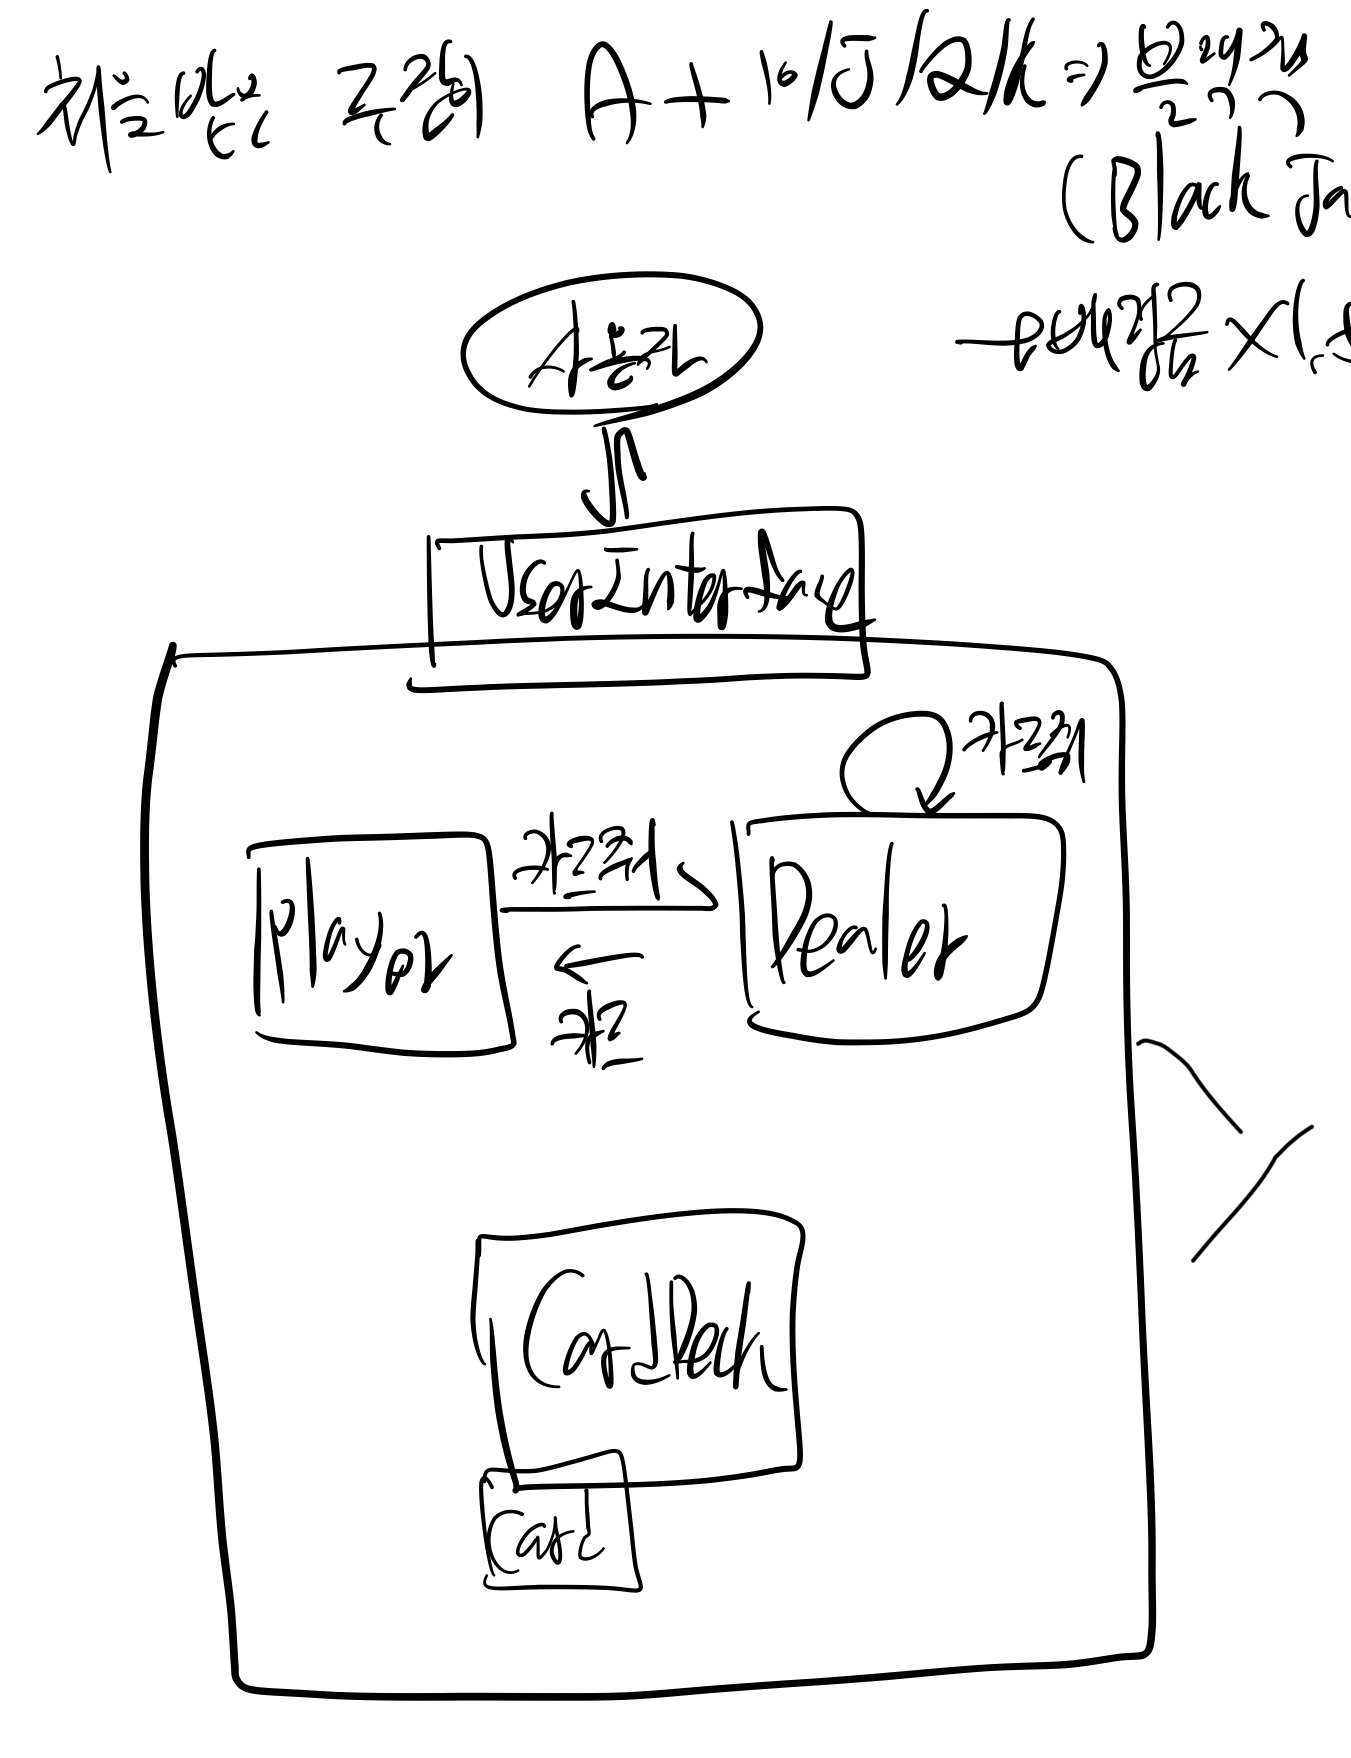 처음 받은 두장이 A + 10/J/Q/K => 블랙잭
(Black Ja
베팅금 X 1.5
사용자
UserInterface
카드줘
카드줘
Player
Dealer
카드
CardDeck
Card